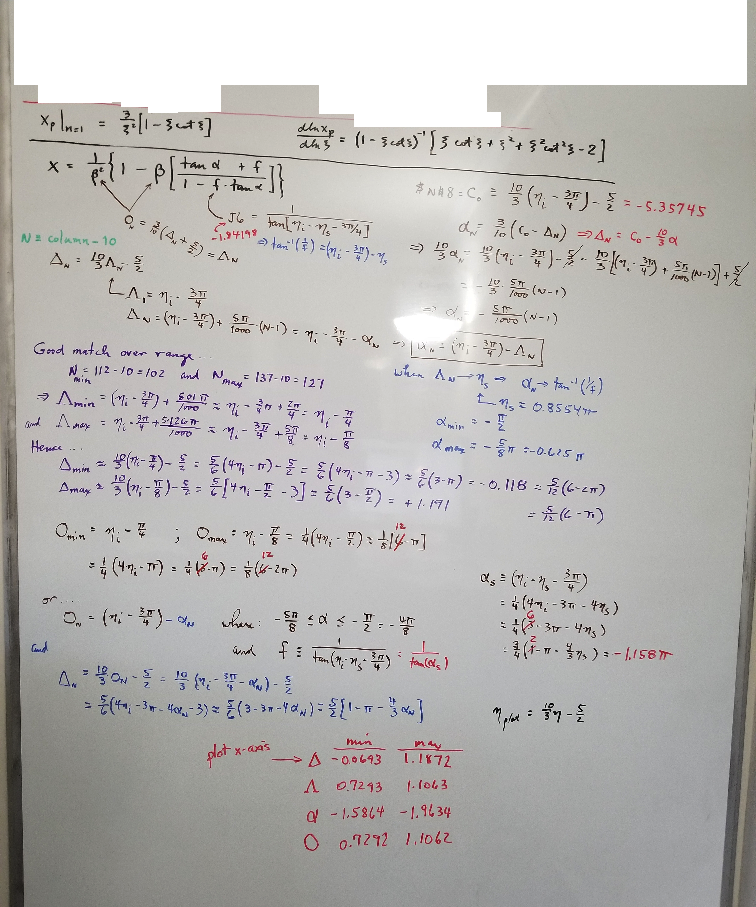 x_P|_{n=1} = 3/ξ² [1 − ξ cot ξ]
dlnx_P/dlnξ = (1 − ξ cot ξ)⁻¹ [ξ cot ξ + ξ² + ξ² cot² ξ − 2]
x = 1/β² {1 − β [(tan α + f)/(1 − f · tan α)]}
O_N = 3/10 (Δ_N + 5/2) = Λ_N
J6 = 1/tan[η_i − η_s − 3π/4]
−1.84198
⇒ tan⁻¹(1/f) = (η_i − 3π/4) − η_s
$N$8 = C_o ≡ 10/3 (η_i − 3π/4) − 5/2 = −5.35745
α_N = 3/10 (C_o − Δ_N) ⇒ Δ_N = C_o − 10/3 α
⇒ 10/3 α_N = 10/3 (η_i − 3π/4) − 5/2 − 10/3 [(η_i − 3π/4) + 5π/1000 (N−1)] + 5/2
= − 10/3 · 5π/1000 (N−1)
⇒ α_N = − 5π/1000 (N−1)
⇒ α_N = (η_i − 3π/4) − Λ_N
N ≡ column − 10
Δ_N = 10/3 Λ_N − 5/2
Λ_1 = η_i − 3π/4
Λ_N = (η_i − 3π/4) + 5π/1000 · (N−1) = η_i − 3π/4 − α_N
Good match over range...
N_min = 112−10 = 102 and N_max = 137−10 = 127
⇒ Λ_min = (η_i − 3π/4) + 501π/1000 ≈ η_i − 3π/4 + 2π/4 = η_i − π/4
and Λ_max = η_i − 3π/4 + 5·126π/1000 ≈ η_i − 3π/4 + 5π/8 = η_i − π/8
when Λ_N → η_s ⇒ α_N → tan⁻¹(1/f)
η_s = 0.8554π
α_min = − π/2
α_max = − 5/8 π = −0.625π
Hence...
Δ_min ≈ 10/3 (η_i − π/4) − 5/2 = 5/6 (4η_i − π) − 5/2 = 5/6 (4η_i − π − 3) ≈ 5/6 (3−π) = −0.118 = 5/12 (6−2π)
Δ_max ≈ 10/3 (η_i − π/8) − 5/2 = 5/6 [4η_i − π/2 − 3] ≈ 5/6 (3 − π/2) = +1.191 = 5/12 (6−π)
O_min = η_i − π/4 ; O_max = η_i − π/8 = 1/4 (4η_i − π/2) ≈ 1/8 [12 − π]
= 1/4 (4η_i − π) = 1/4 (6 − π) = 1/8 (12 − 2π)
or...
O_N = (η_i − 3π/4) − α_N where: − 5π/8 ≤ α ≤ − π/2 = − 4π/8
and f ≡ 1/tan(η_i − η_s − 3π/4) = 1/tan(α_s)
α_s ≡ (η_i − η_s − 3π/4)
= 1/4 (4η_i − 3π − 4η_s)
= 1/4 (6 − 3π − 4η_s)
= 3/4 (2 − π − 4/3 η_s) = −1.158π
and
Δ_N = 10/3 O_N − 5/2 = 10/3 (η_i − 3π/4 − α_N) − 5/2
= 5/6 (4η_i − 3π − 4α_N − 3) ≈ 5/6 (3 − 3π − 4α_N) = 5/2 [1 − π − 4/3 α_N]
η_plot = 10/3 η − 5/2
min max
plot x-axis → Δ −0.0693 1.1872
Λ 0.7293 1.1063
α −1.5864 −1.9634
O 0.7292 1.1062